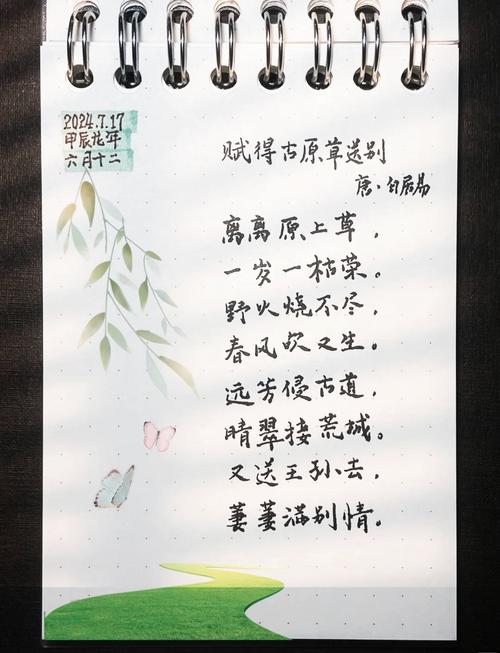 2024.7.17
甲辰龙年
六月十二
赋得古原草送别
唐·白居易
离离原上草，
一岁一枯荣。
野火烧不尽，
春风吹又生。
远芳侵古道，
晴翠接荒城。
又送王孙去，
萋萋满别情。